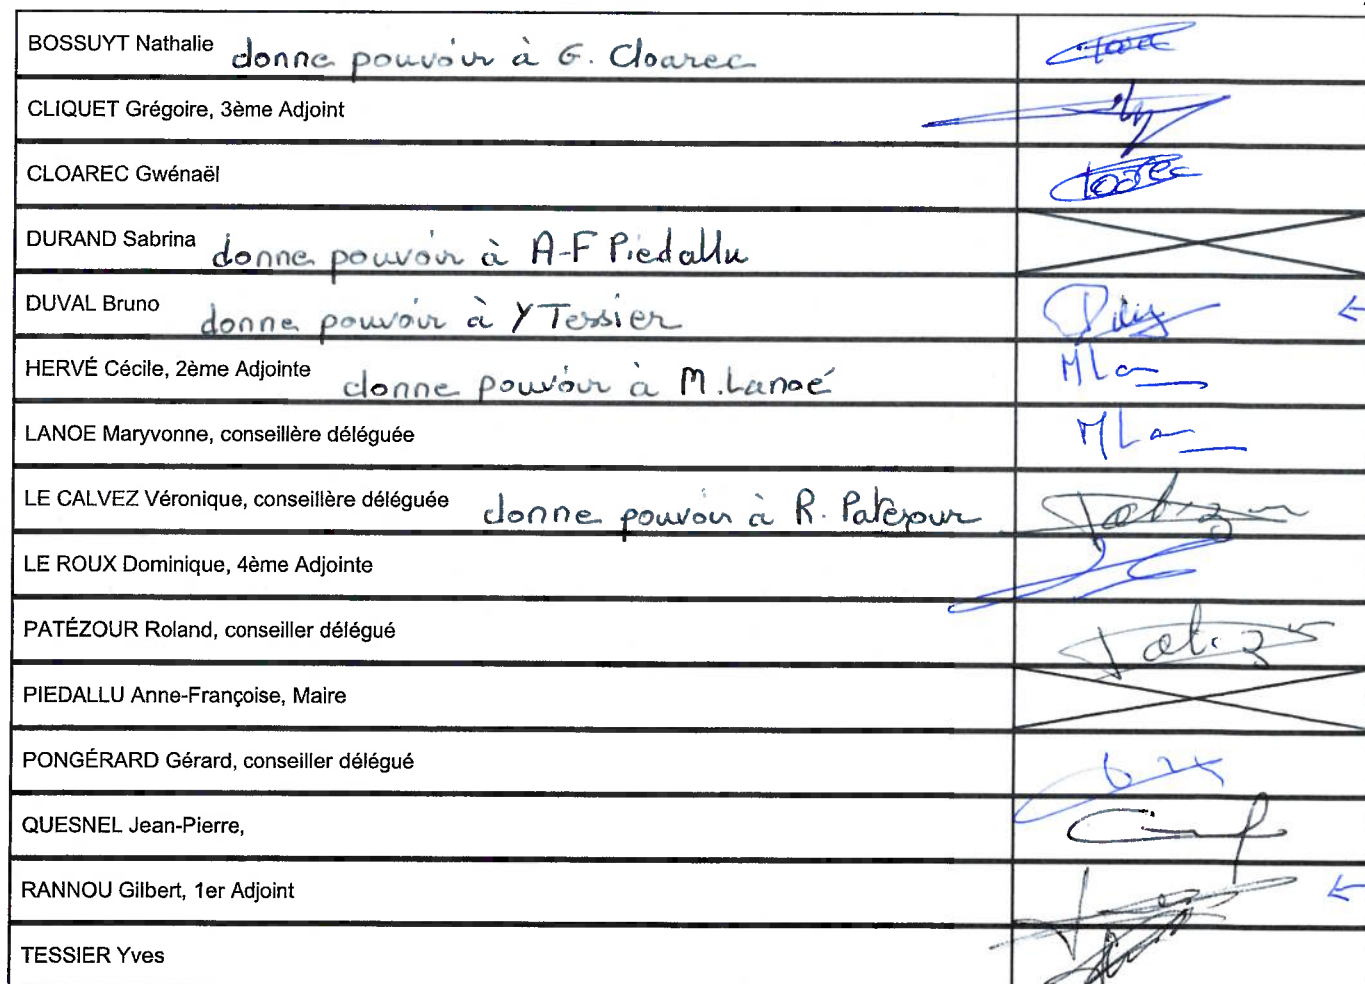 BOSSUYT Nathalie donne pouvoir à G. Cloarec
CLIQUET Grégoire, 3ème Adjoint
CLOAREC Gwénaël
DURAND Sabrina donne pouvoir à A-F Piedallu
DUVAL Bruno donne pouvoir à Y Tessier
HERVÉ Cécile, 2ème Adjointe donne pouvoir à M. Lanoé
LANOE Maryvonne, conseillère déléguée
LE CALVEZ Véronique, conseillère déléguée donne pouvoir à R. Patézour
LE ROUX Dominique, 4ème Adjointe
PATÉZOUR Roland, conseiller délégué
PIEDALLU Anne-Françoise, Maire
PONGÉRARD Gérard, conseiller délégué
QUESNEL Jean-Pierre,
RANNOU Gilbert, 1er Adjoint
TESSIER Yves